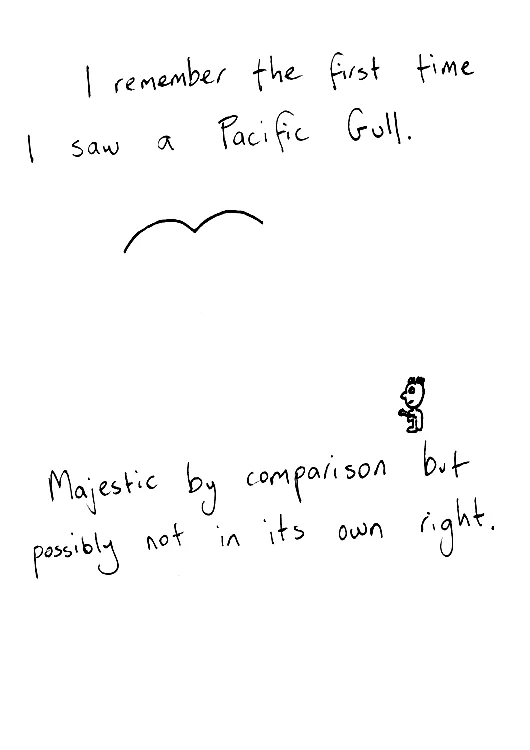 I remember the first time
I saw a Pacific Gull.
Majestic by comparison but
possibly not in its own right.